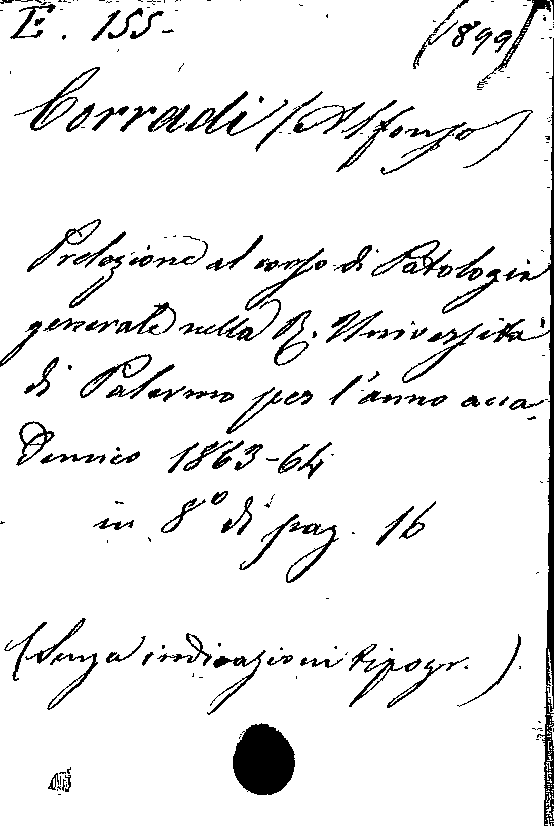 E. 155- (899)
Corradi (Alfonso)
Prolezione al corso di Patologia
generale nella R. Università
di Palermo per l'anno acca-
demico 1863-64
in 8° di pag. 16
(Senza indicazioni tipogr.)